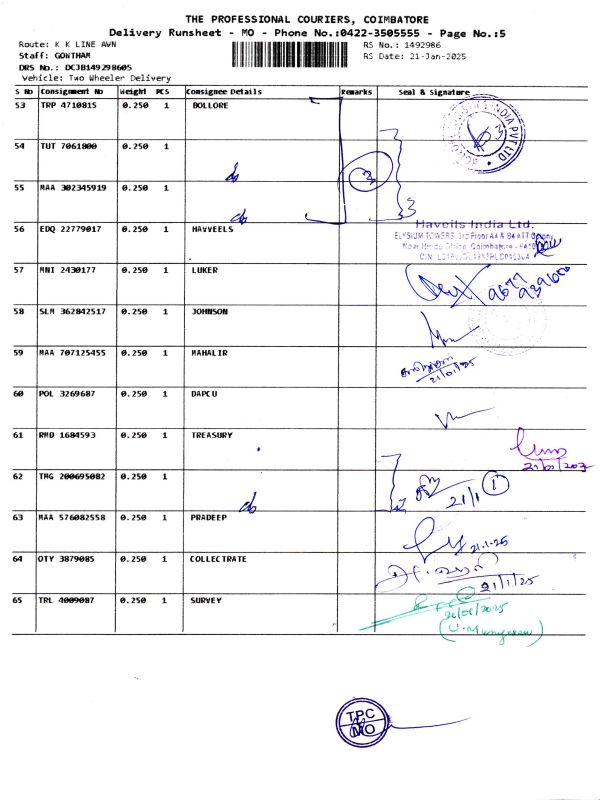 THE PROFESSIONAL COURIERS, COIMBATORE
Delivery Runsheet - MO - Phone No.:0422-3505555 - Page No.:5
Route: K K LINE AWN RS No.: 1492986
Staff: GOWTHAM RS Date: 21-Jan-2025
DRS No.: DCJB149298605
Vehicle: Two Wheeler Delivery
S No Consignment No Weight PCS Consignee Details Remarks Seal & Signature
53 TRP 4710815 0.250 1 BOLLORE
54 TUT 7061800 0.250 1
do
55 MAA 302345919 0.250 1 3
do
56 EDQ 22779017 0.250 1 HAVVEELS Havells India Ltd.
ELYSIUM TOWERS, 3rd Floor A4 & B4 ATT Colony
57 MNI 2430177 0.250 1 LUKER
58 SLM 362842517 0.250 1 JOHNSON
59 MAA 707125455 0.250 1 MAHALIR
21/01/25
60 POL 3269687 0.250 1 DAPCU
61 RMD 1684593 0.250 1 TREASURY
62 TMG 200695082 0.250 1 1
do 21/1
63 MAA 576082558 0.250 1 PRADEEP
21-1-25
64 OTY 3879085 0.250 1 COLLECTRATE
21/1/25
65 TRL 4009087 0.250 1 SURVEY
21/01/2025
TPC
MO